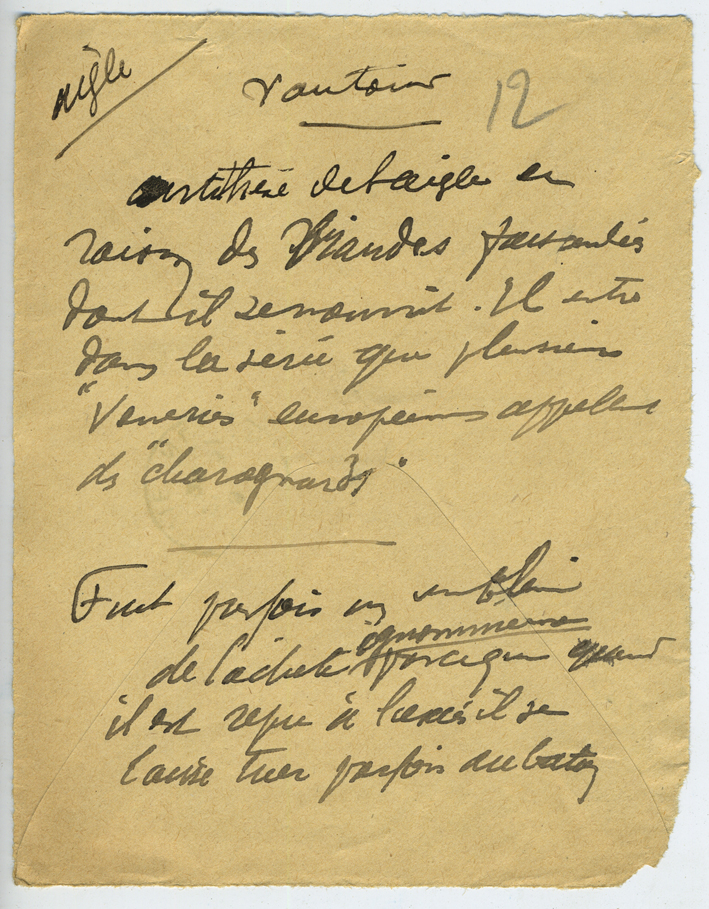 aigle
Vautour
12
antithèse de l'aigle en
raison des Viandes faisandées
dont il se nourrit. Il entre
dans la série que plusieurs
"Véneries" européennes appellent
des "charognards"
Fut parfois un emblème
ignominieux
de lâcheté parce que quand
il est repu à l'excès il se
laisse tuer parfois au baton